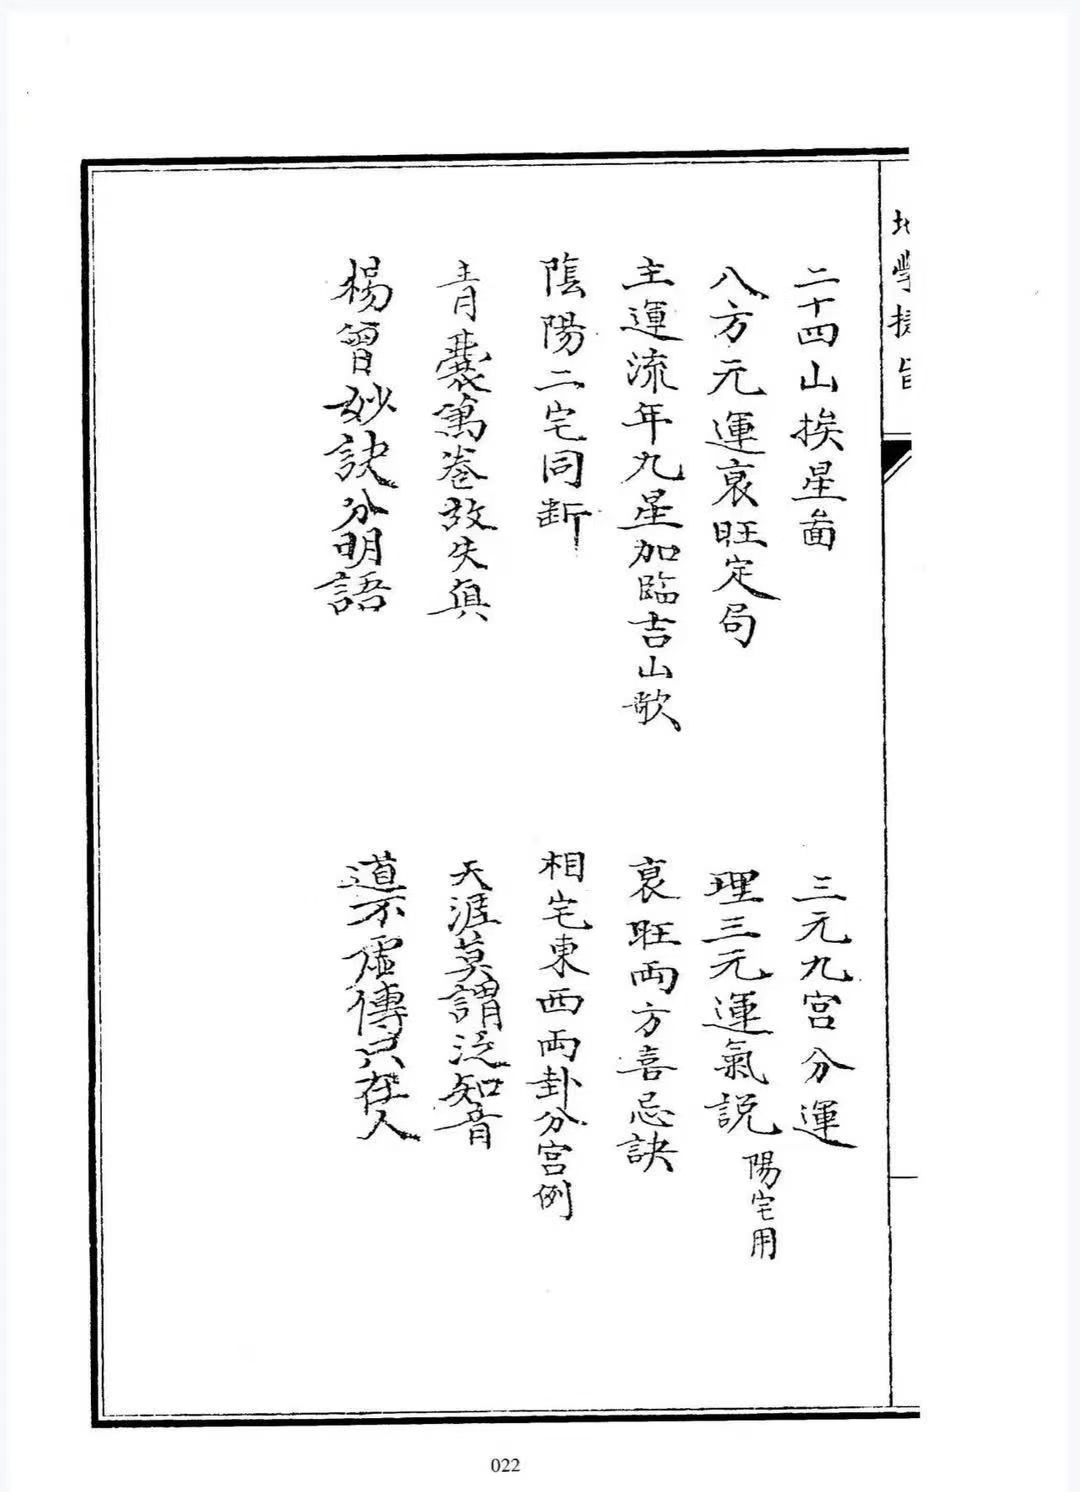 地學捷旨
二十四山挨星啚 三元九宮分運
八方元運衰旺定局 理三元運氣説 陽宅用
主運流年九星加臨吉山歌 衰旺両方喜忌訣
陰陽二宅同断 相宅東西両卦分宮例
青囊萬卷故失真 天涯莫謂泛知音
楊曾妙訣分明語 道不虛傳只在人
022